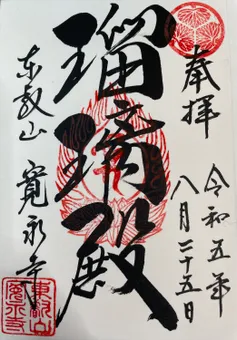 奉拝
令和五年
八月二十五日
瑠璃殿
東叡山
寛永寺
東叡山
寛永寺